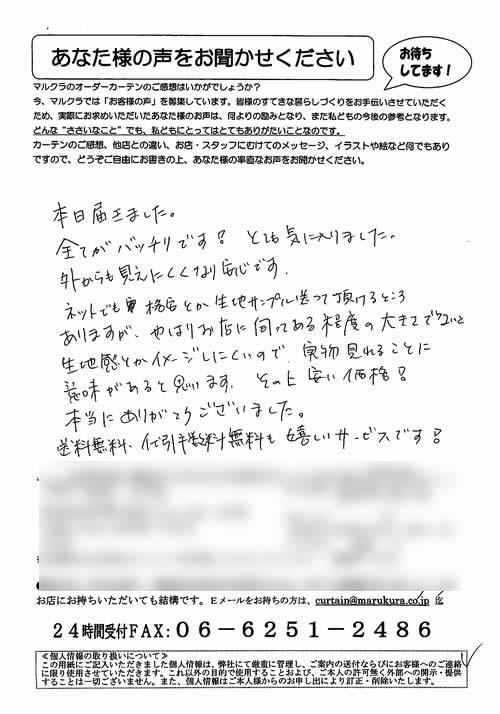 あなた様の声をお聞かせください
お待ち
してます!
マルクラのオーダーカーテンのご感想はいかがでしょうか?
今、マルクラでは「お客様の声」を募集しています。皆様のすてきな暮らしづくりをお手伝いさせていただく
ため、実際にお求めいただいたあなた様のお声は、何よりの励みとなり、また私どもの今後の参考となります。
どんな“ささいなこと”でも、私どもにとってはとてもありがたいことなのです。
カーテンのご感想、他店との違い、お店・スタッフにむけてのメッセージ、イラストや絵など何でもあり
ですので、どうぞご自由にお書きの上、あなた様の率直なお声をお聞かせください。
本日届きました。
全てがバッチリです! とても気に入りました。
外からも見えにくくなり安心です.
ネットでも 格安とか生地サンプル送って頂けるところ
ありますが、やはりお店に伺ってある程度の大きさでないと
生地感とかイメージしにくいので、実物見れることに
意味があると思います. その上 安い価格!
本当にありがとうございました。
送料無料、代引手数料無料も嬉しいサービスです!
お店にお持ちいただいても結構です。Eメールをお持ちの方は、curtain@marukura.co.jp 迄
24時間受付FAX:06-6251-2486
≪個人情報の取り扱いについて≫
この用紙にご記入いただきました個人情報は、弊社にて厳重に管理し、ご案内の送付ならびにお客様へのご連絡
に限り使用させていただきます。これ以外の目的で使用することおよび、ご本人の許可無く外部への開示・提供
することは一切ございません。また、個人情報はご本人様からのお申し出により訂正・削除いたします。